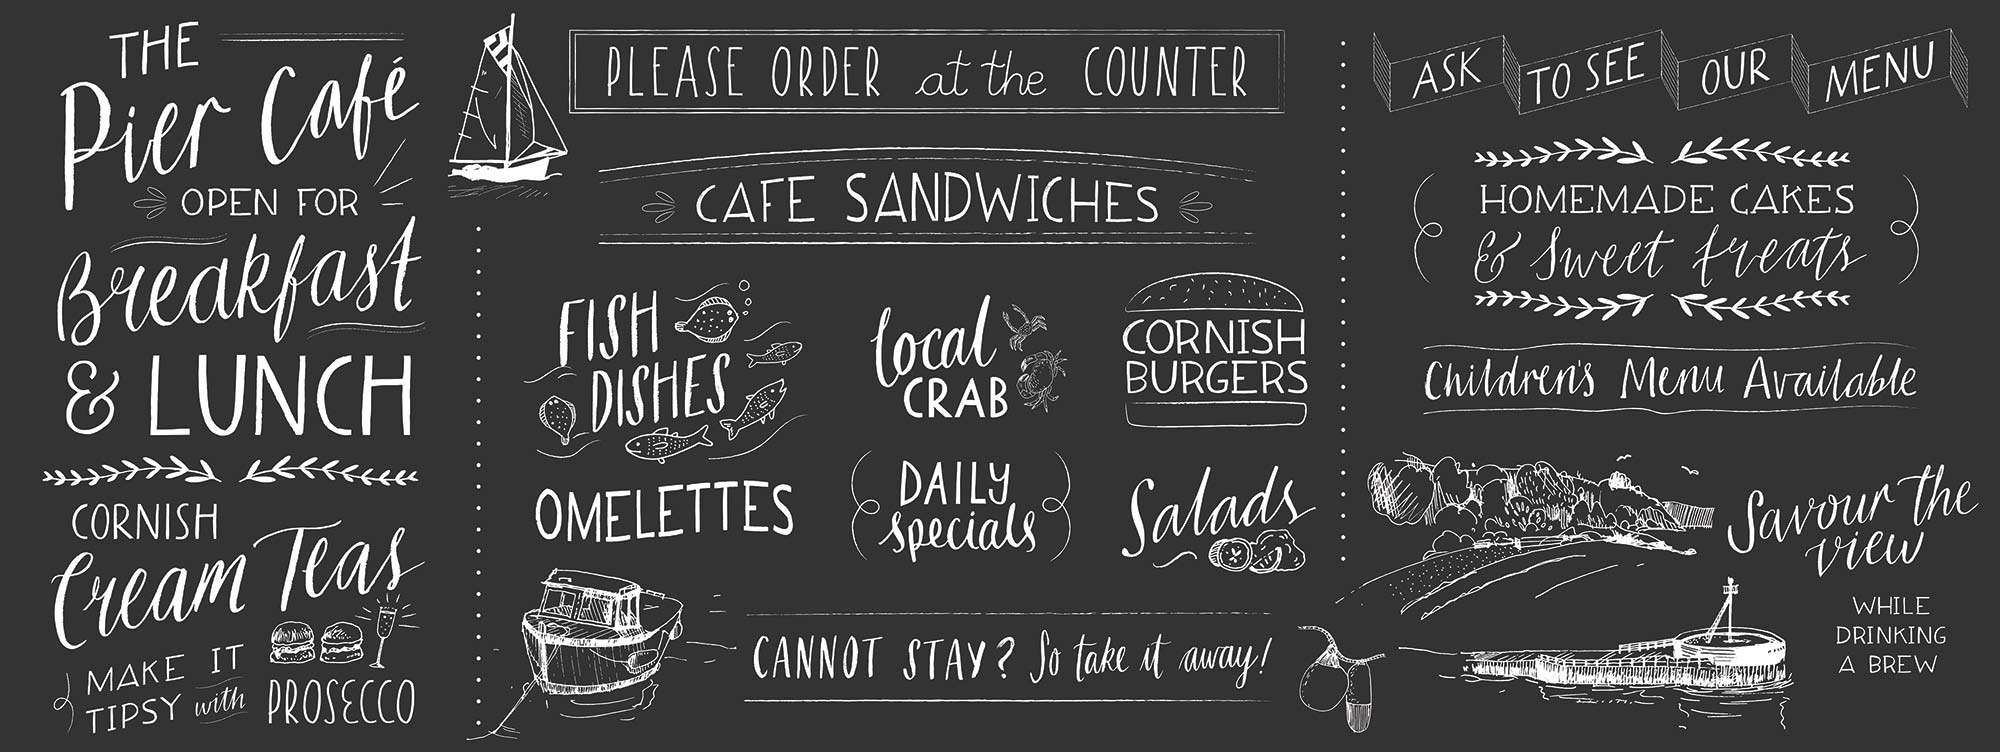 THE
Pier Café
OPEN FOR
Breakfast
& LUNCH
CORNISH
Cream Teas
MAKE IT
TIPSY with
PROSECCO
PLEASE ORDER at the COUNTER
CAFE SANDWICHES
FISH
DISHES
local
CRAB
CORNISH
BURGERS
OMELETTES
DAILY
specials
Salads
CANNOT STAY? So take it away!
ASK TO SEE OUR MENU
HOMEMADE CAKES
& Sweet treats
Children's Menu Available
Savour the
view
WHILE
DRINKING
A BREW